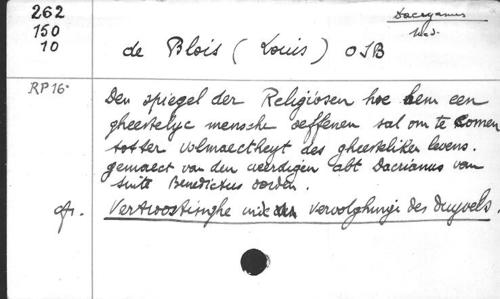 262
150
10
Dacryanus
de Blois (Louis) OSB
RP 16.
Den spiegel der Religiosen hoe hem een
gheestelyc mensche oeffenen sal om te comen
totter volmaectheyt des gheesteliken levens.
gemaect van den weerdigen abt Dacrianus van
Sinte Benedictus oorden.
cfr. Vertroostinghe vervolghinge des duyvels.